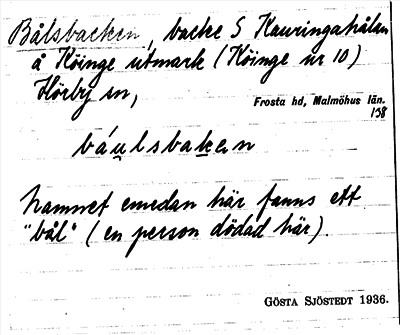 Bålsbacken, backe S Kauringahålan
å Köinge utmark (Köinge nr 10)
Hörby sn,
Frosta hd, Malmöhus län.
138
báulsbaken
Namnet emedan här fanns ett
"bål" (en person dödad här).
GÖSTA SJÖSTEDT 1936.